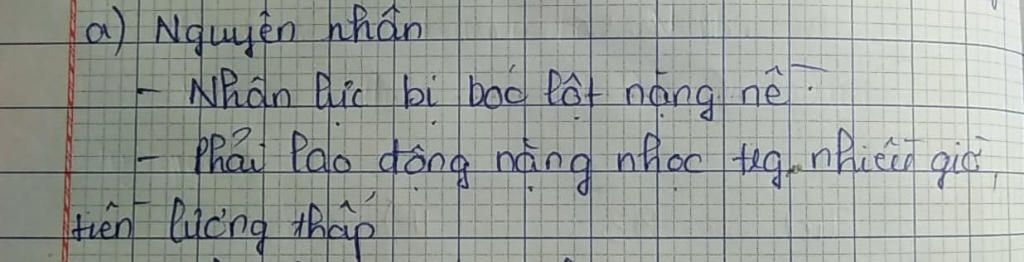 a) Nguyên nhân
- Nhân lực bị bóc lột nặng nề.
- Phải lao động nặng nhọc trg nhiều giờ,
tiền lương thấp